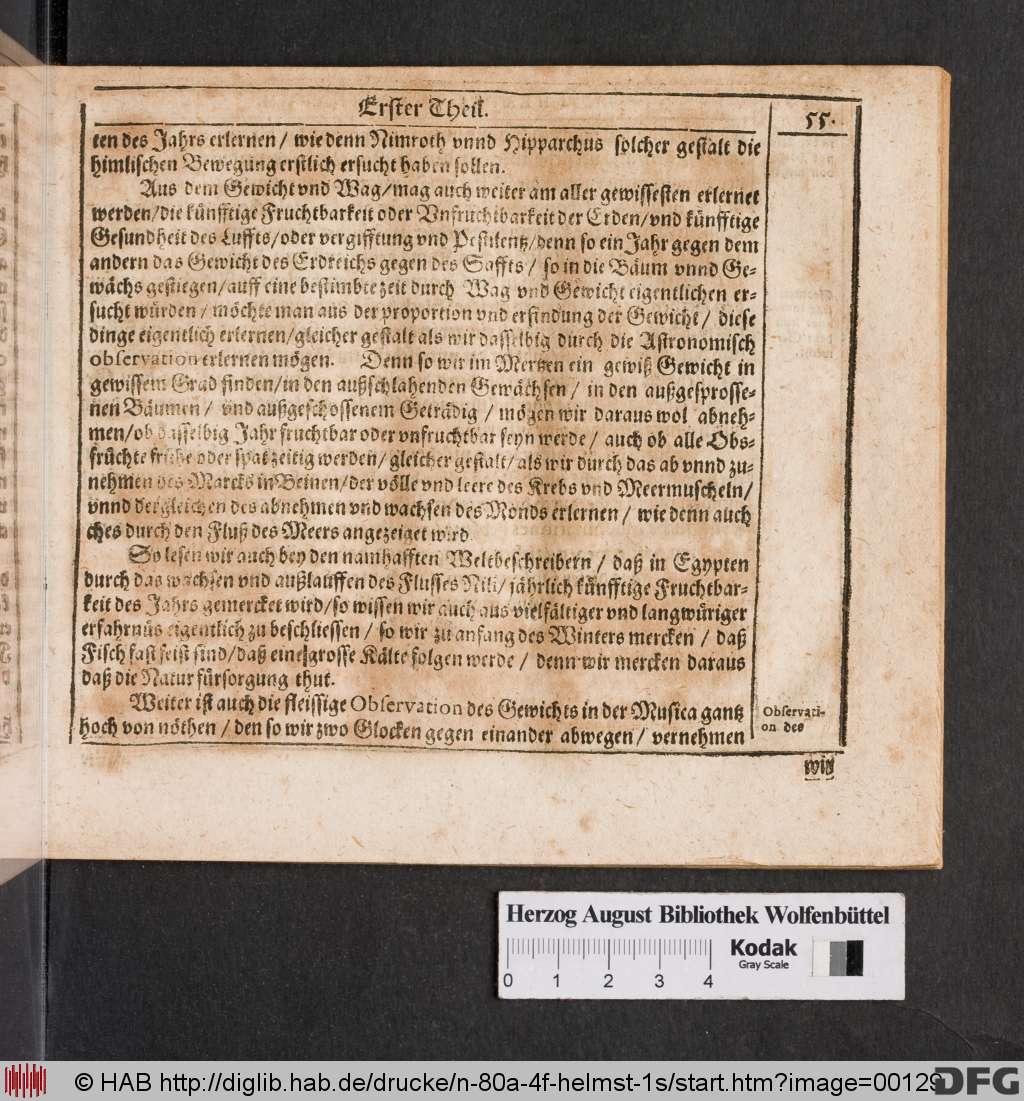 Erster Theil.
55.
ten des Jahrs erlernen / wie denn Nimroth vnnd Hipparchus solcher gestalt die
himlischen Bewegung erstlich ersucht haben sollen.
Aus dem Gewicht vnd Wag/mag auch weiter am aller gewissesten erlernet
werden/die künfftige Fruchtbarkeit oder Vnfruchtbarkeit der Erden/vnd künfftige
Gesundheit des Luffts/oder vergifftung vnd Pestilentz/denn so ein Jahr gegen dem
andern das Gewicht des Erdreichs gegen des Saffts / so in die Bäum vnnd Ge-
wächs gestiegen/auff eine bestimbte zeit durch Wag vnd Gewicht eigentlichen er-
sucht würden / möchte man aus der proportion vnd erfindung der Gewicht / diese
dinge eigentlich erlernen/gleicher gestalt als wir dasselbig durch die Astronomisch
observation erlernen mögen. Denn so wir im Mertzen ein gewiß Gewicht in
gewissem Grad finden/in den außschlahenden Gewächsen / in den außgesprosse-
nen Bäumen / vnd außgeschossenem Geträdig / mögen wir daraus wol abneh-
men/ob dasselbig Jahr fruchtbar oder vnfruchtbar seyn werde / auch ob alle Obs-
früchte frühe oder spat zeitig werden/gleicher gestalt/als wir durch das ab vnnd zu-
nehmen des Marcks in Beinen/der völle vnd leere des Krebs vnd Meermuscheln/
vnnd dergleichen des abnehmen vnd wachsen des Monds erlernen / wie denn auch
ches durch den Fluß des Meers angezeiget wird
So lesen wir auch bey den namhafften Weltbeschreibern / daß in Egypten
durch das wachsen vnd außlauffen des Flusses Nili/jährlich künfftige Fruchtbar-
keit des Jahrs gemercket wird/so wissen wir auch aus vielfältiger vnd langwüriger
erfahrnüs eigentlich zu beschliessen / so wir zu anfang des Winters mercken / daß
Fisch fast feist sind/daß eine grosse Kälte folgen werde / denn wir mercken daraus
daß die Natur fürsorgung thut.
Weiter ist auch die fleissige Observation des Gewichts in der Musica gantz
hoch von nöthen / den so wir zwo Glocken gegen einander abwegen / vernehmen
Observati-
on des
wir
Herzog August Bibliothek Wolfenbüttel
0 1 2 3 4
Kodak
Gray Scale
© HAB http://diglib.hab.de/drucke/n-80a-4f-helmst-1s/start.htm?image=00129
DFG